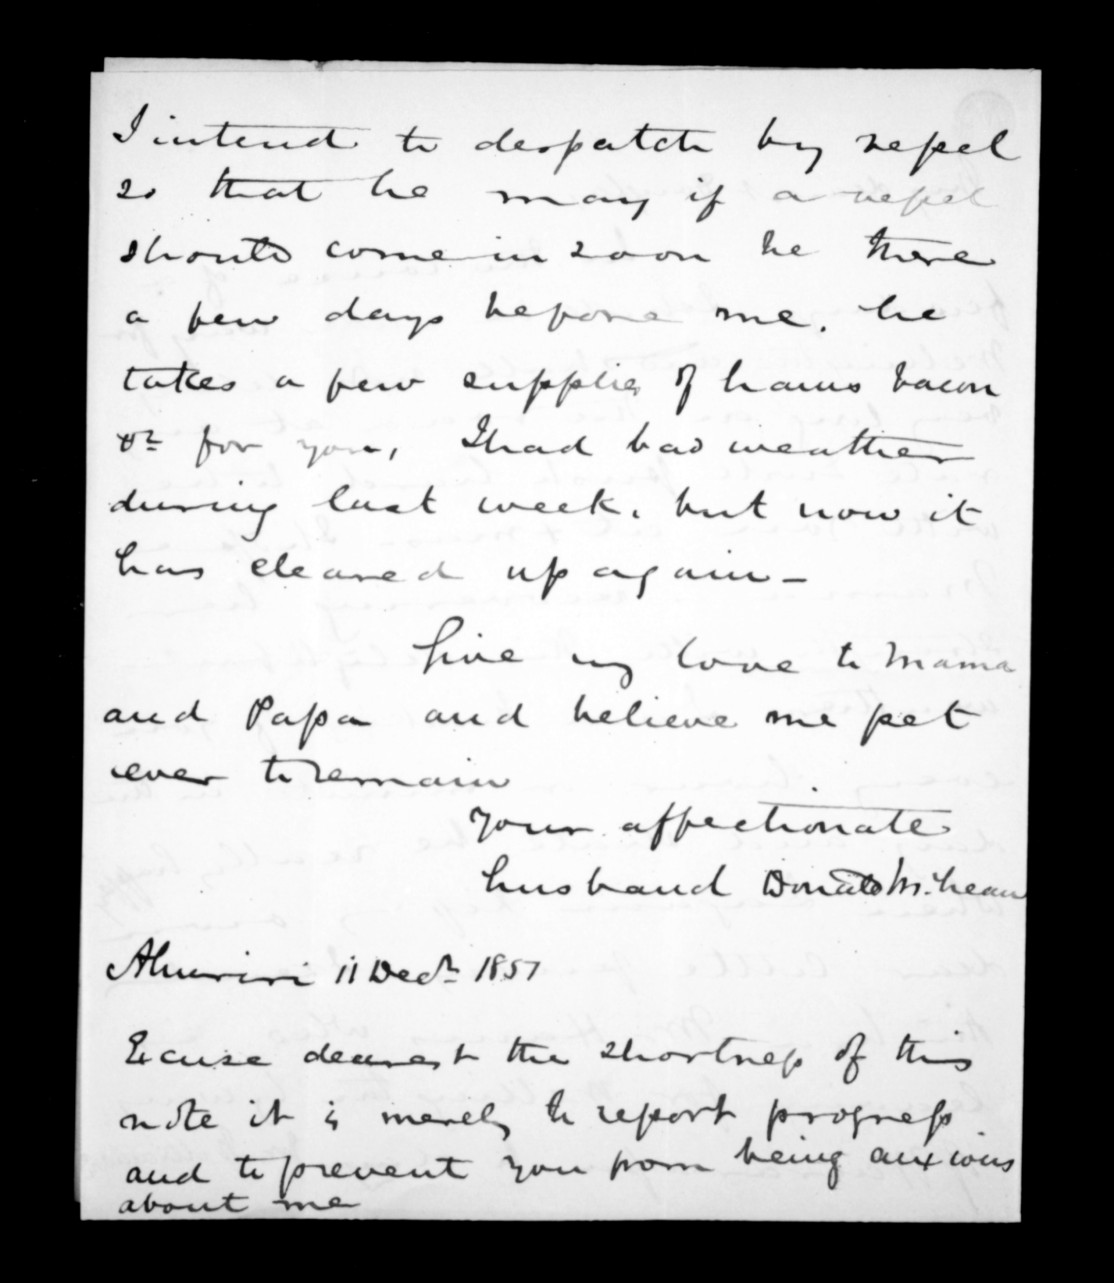 I intend to despatch by vessel
so that he may if a vessel
should come in soon be there
a few days before me. he
takes a few supplies of hams bacon
&c for you, I had bad weather
during last week. but now it
has cleared up again -
Give my love to Mama
and Papa and believe me pet
ever to remain
Your affectionate
husband Donald McLean
Ahuriri 11 Decr 1851
Excuse dearest the shortness of this
note it is merely to report progress
and to prevent you from being anxious
about me